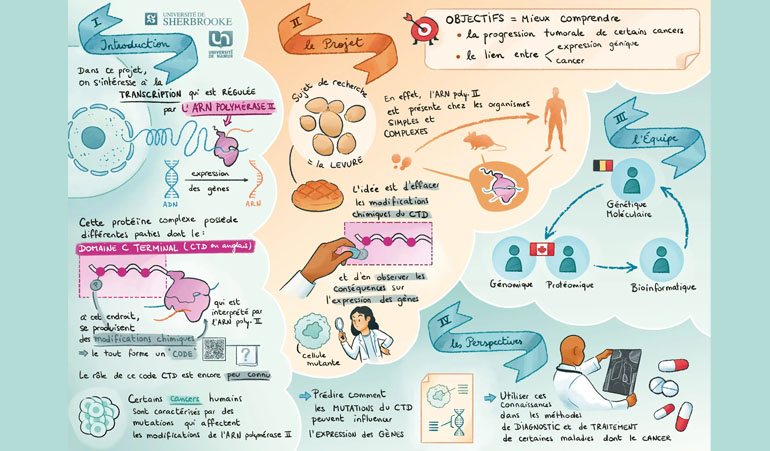 I
Introduction
UNIVERSITÉ DE
SHERBROOKE
UNIVERSITÉ
DE NAMUR
Dans ce projet,
on s'intéresse à la
TRANSCRIPTION qui est RÉGULÉE
par L'ARN POLYMÉRASE II
expression
des gènes
ADN
ARN
Cette protéine complexe possède
différentes parties dont le :
DOMAINE C TERMINAL (CTD en anglais)
qui est
interprété par
l'ARN poly. II
à cet endroit,
se produisent
des modifications chimiques
le tout forme un "CODE"
?
Le rôle de ce code CTD est encore peu connu
Certains cancers humains
sont caractérisés par des
mutations qui affectent
les modifications de l'ARN polymérase II
II
le Projet
OBJECTIFS = Mieux comprendre
• la progression tumorale de certains cancers
• le lien entre
expression génique
cancer
Sujet de recherche
= la LEVURE
En effet, l'ARN poly. II
est présente chez les organismes
SIMPLES et
COMPLEXES
L'idée est d'effacer
les modifications
chimiques du CTD
et d'en observer les
conséquences sur
l'expression des gènes
cellule
mutante
III
l'Équipe
Génétique
Moléculaire
Génomique
Protéomique
Bioinformatique
IV
les Perspectives
Prédire comment
les MUTATIONS du CTD
peuvent influencer
l'EXPRESSION des GÈNES
Utiliser ces
connaissances
dans les méthodes
de DIAGNOSTIC et de TRAITEMENT
de certaines maladies dont le CANCER